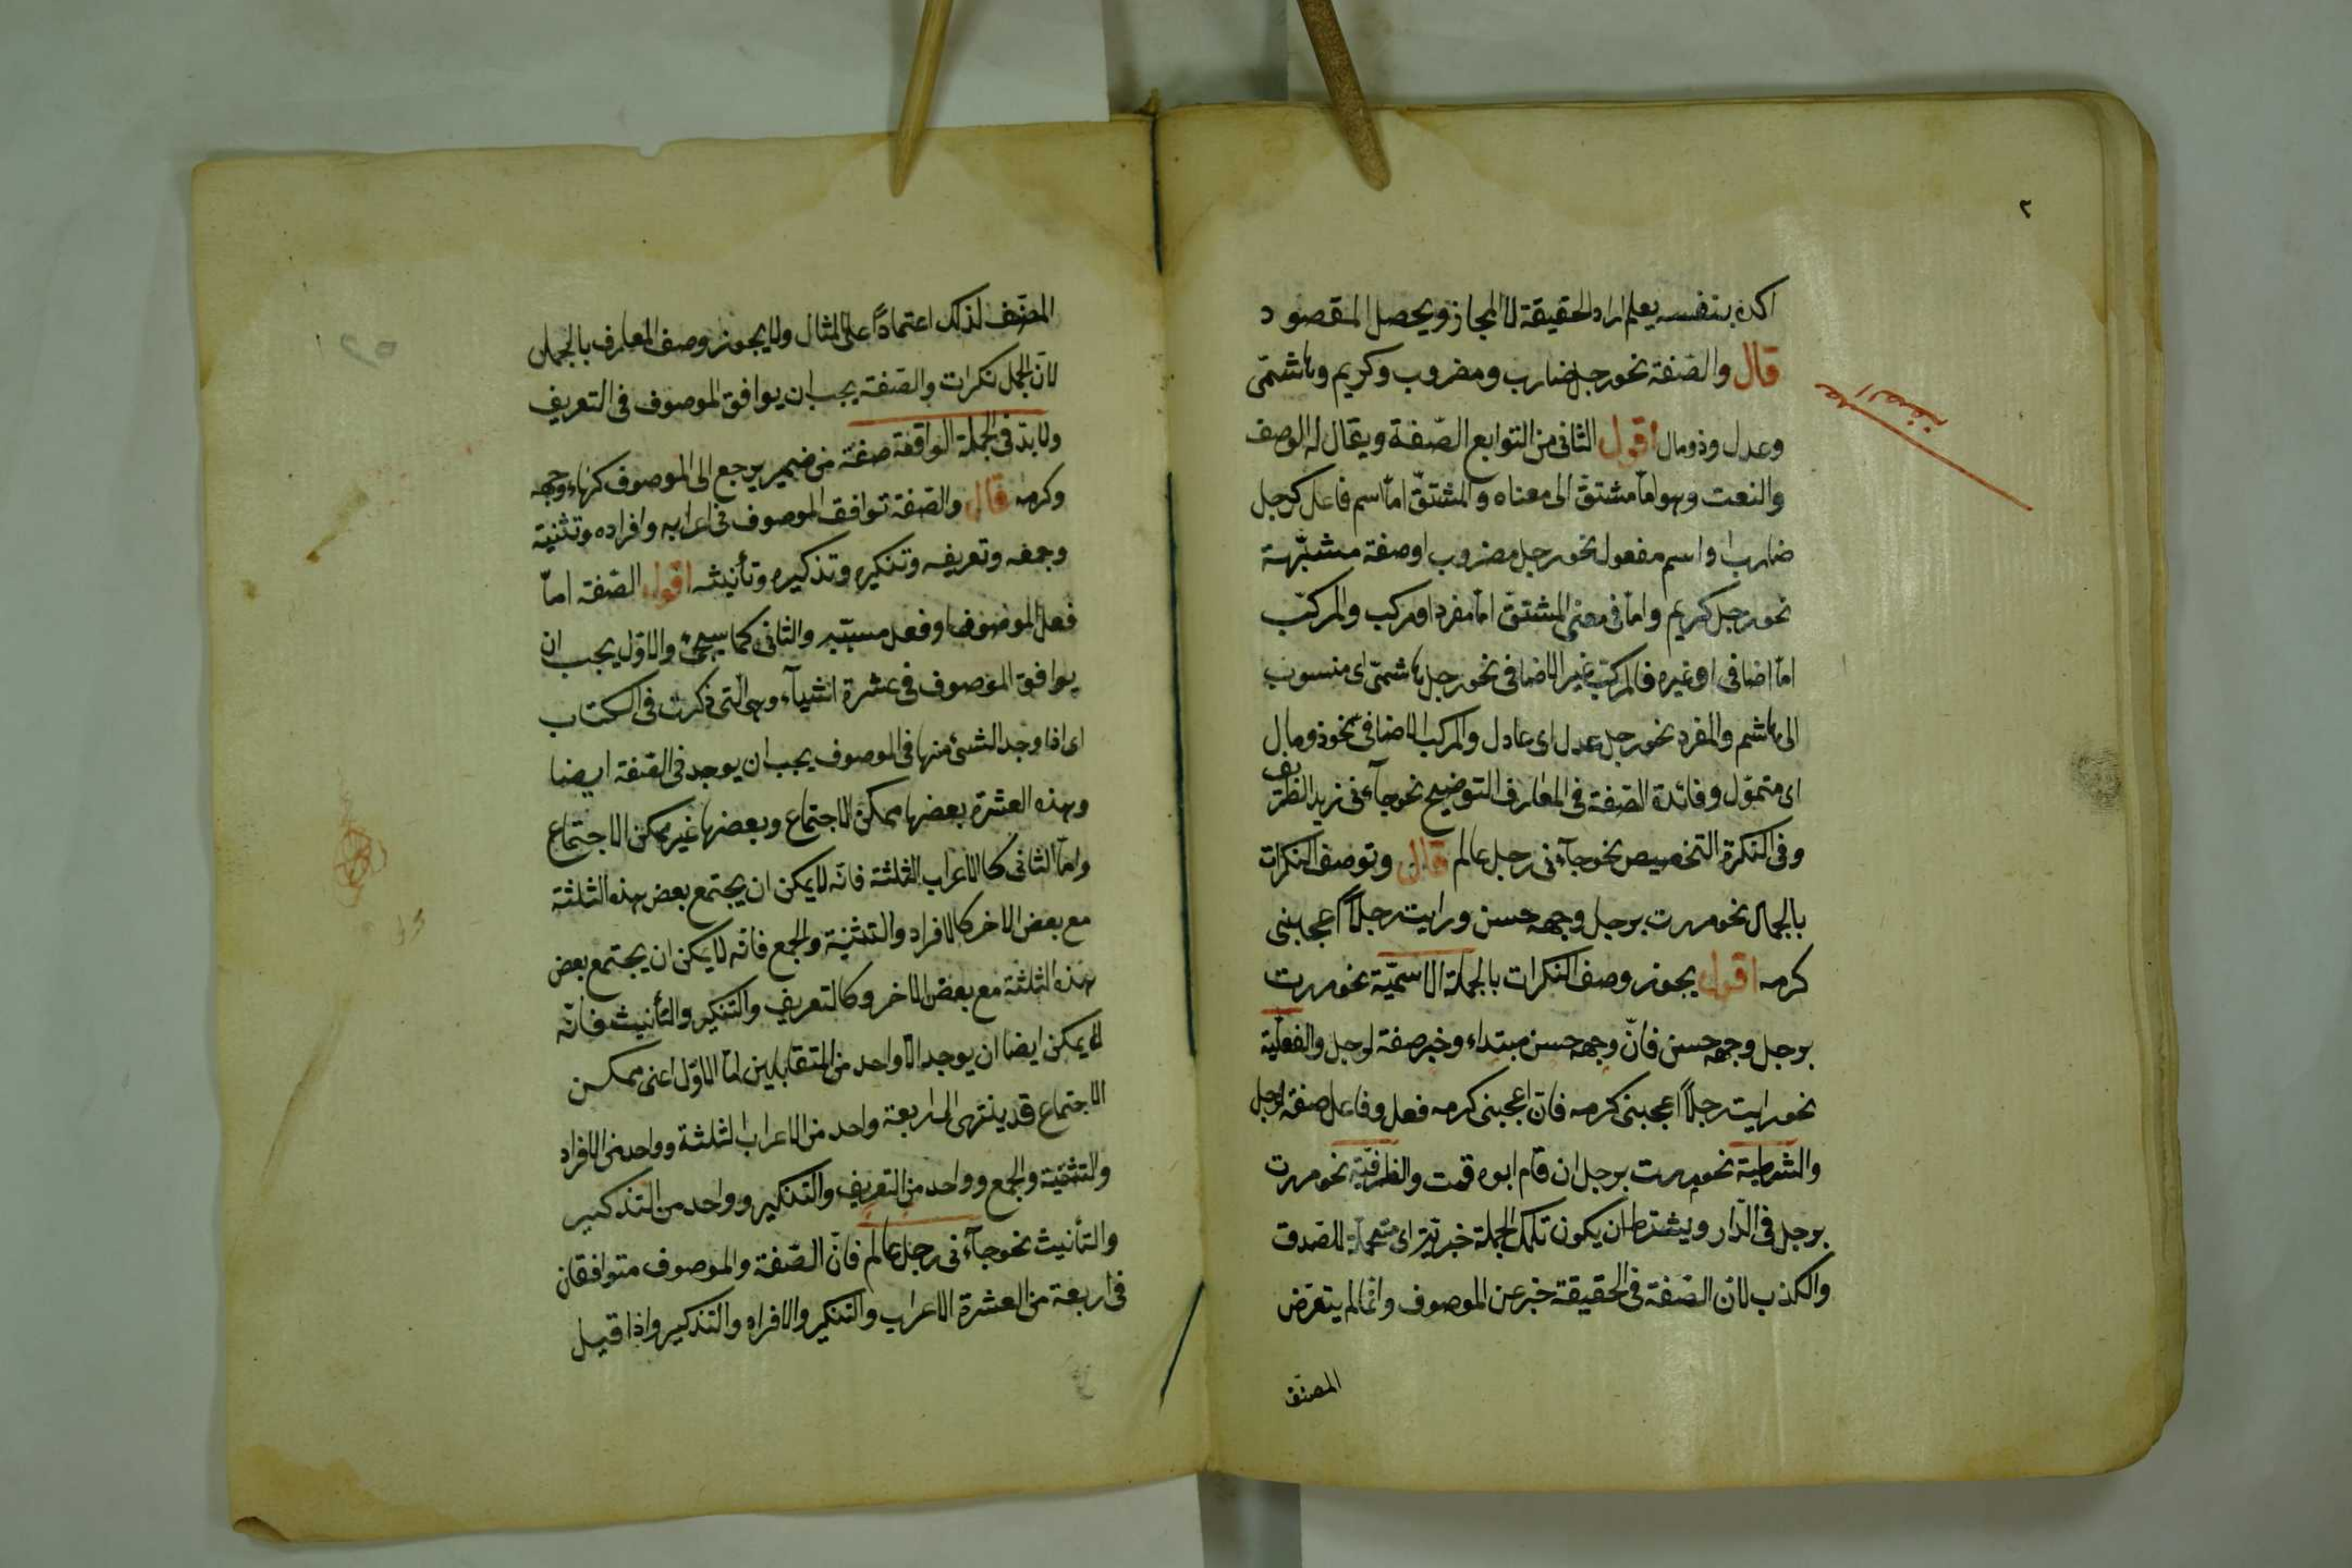 ٢
اكده بنفسه يعلم اراد الحقيقة لا المجاز ويحصل المقصود
قال والصّفة نحو رجل ضارب ومضروب وكريم وهاشمىّ
الصفة
وعدل وذو مال اقول الثانى من التوابع الصّفة ويقال له الوصف
والنعت وهو امّا مشتقّ الى معناه والمشتقّ امّا اسم فاعل كرجل
ضارب او اسم مفعول نحو رجل مضروب او صفة مشبّهة
نحو رجل كريم وامّا فى معنى المشتقّ امّا مفرد او مركب والمركّب
امّا اضافى او غيره فالمركّب غير الاضافى نحو رجل هاشمىّ اى منسوب
الى هاشم والمفرد نحو رجل عدل اى عادل والمركب الاضافى نحو ذو مال
اى متموّل وفائدة الصّفة فى المعارف التوضيح نحو جآءنى زيد الظريف
وفى النكرة التخصيص نحو جآءنى رجل عالم قال وتوصف النكرات
بالجمل نحو مررت برجل وجهه حسن ورايت رجلاً اعجبنى
كرمه اقول يجوز وصف النكرات بالجملة الاسميّة نحو مررت
برجل وجهه حسن فانّ وجهه حسن مبتداء وخبر صفة لرجل والفعليّة
نحو رايت رجلاً اعجبنى كرمه فانّ اعجبنى كرمه فعل وفاعل صفة لرجل
والشرطية نحو مررت برجل ان قام ابوه قمت والظرفيّة نحو مررت
برجل فى الدّار ويشترط ان يكون تلك الجملة خبريّة اى متحملة للصدق
والكذب لانّ الصّفة فى الحقيقة خبر عن الموصوف وانّما لم يتعرّض
المصنّف
المصنّف لذلك اعتماداً على المثال ولا يجوز وصف المعارف بالجمل
لانّ الجمل نكرات والصّفة يجب ان يوافق الموصوف فى التعريف
ولا بدّ فى الجملة الواقعة صفة من ضمير يرجع الى الموصوف كهاء وجهه
وكرمه قال والصّفة توافق الموصوف فى اعرابه وافراده وتثنية
وجمعه وتعريفه وتنكيره وتذكيره وتأنيثه اقول الصّفة امّا
فعل الموصوف او فعل مسبّبه والثانى كما سيجئ والاوّل يجب ان
يوافق الموصوف فى عشرة اشيآء وهى الّتى ذكرت فى الكتاب
اى اذا وجد الشئ منها فى الموصوف يجب ان يوجد فى الصّفة ايضا
وهذه العشرة بعضها ممكن الاجتماع وبعضها غير ممكن الاجتماع
وامّا الثانى كالاعراب الثلثة فانّه لا يمكن ان يجتمع بعض هذه الثلثة
مع بعض الاخر كالافراد والتثنية والجمع فانّه لا يمكن ان يجتمع بعض
هذه الثلثة مع بعض الاخر وكالتعريف والتنكير والتأنيث فانّه
لا يمكن ايضا ان يوجد الّا واحد من المتقابلين امّا الاوّل اعنى ممكن
الاجتماع قد ينتهى الى اربعة واحد من الاعراب الثلثة وواحد من الافراد
والتثنية والجمع وواحد من التعريف والتنكير وواحد من التذكير
والتأنيث نحو جآءنى رجل عالم فانّ الصّفة والموصوف متوافقان
فى اربعة من العشرة الاعراب والتنكير والافراد والتذكير واذا قيل